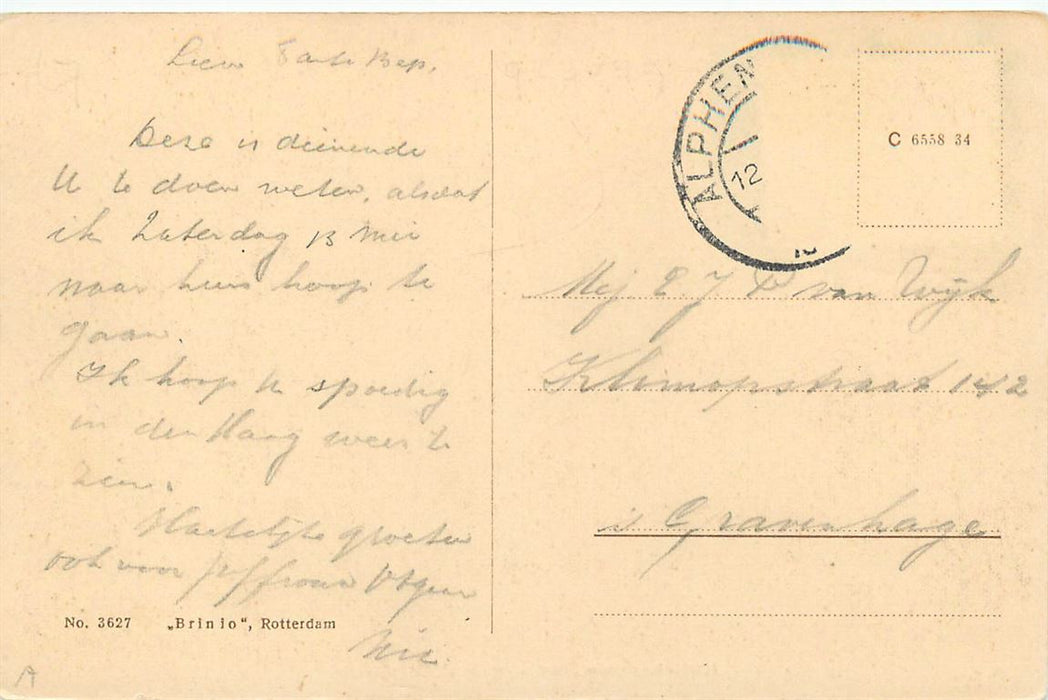 Lieve Tante Bep.
Deze is dienende
U te doen weten, alsdat
ik Zaterdag 13 Mei
naar huis hoop te
gaan.
Ik hoop U spoedig
in den Haag weer te
zien.
Hartelijke groeten
ook voor Juffrouw
No. 3627 „Brinio“, Rotterdam
A
ALPHEN
12
C 6558 34
Mej E J P van Wijk
straat 142
's Gravenhage